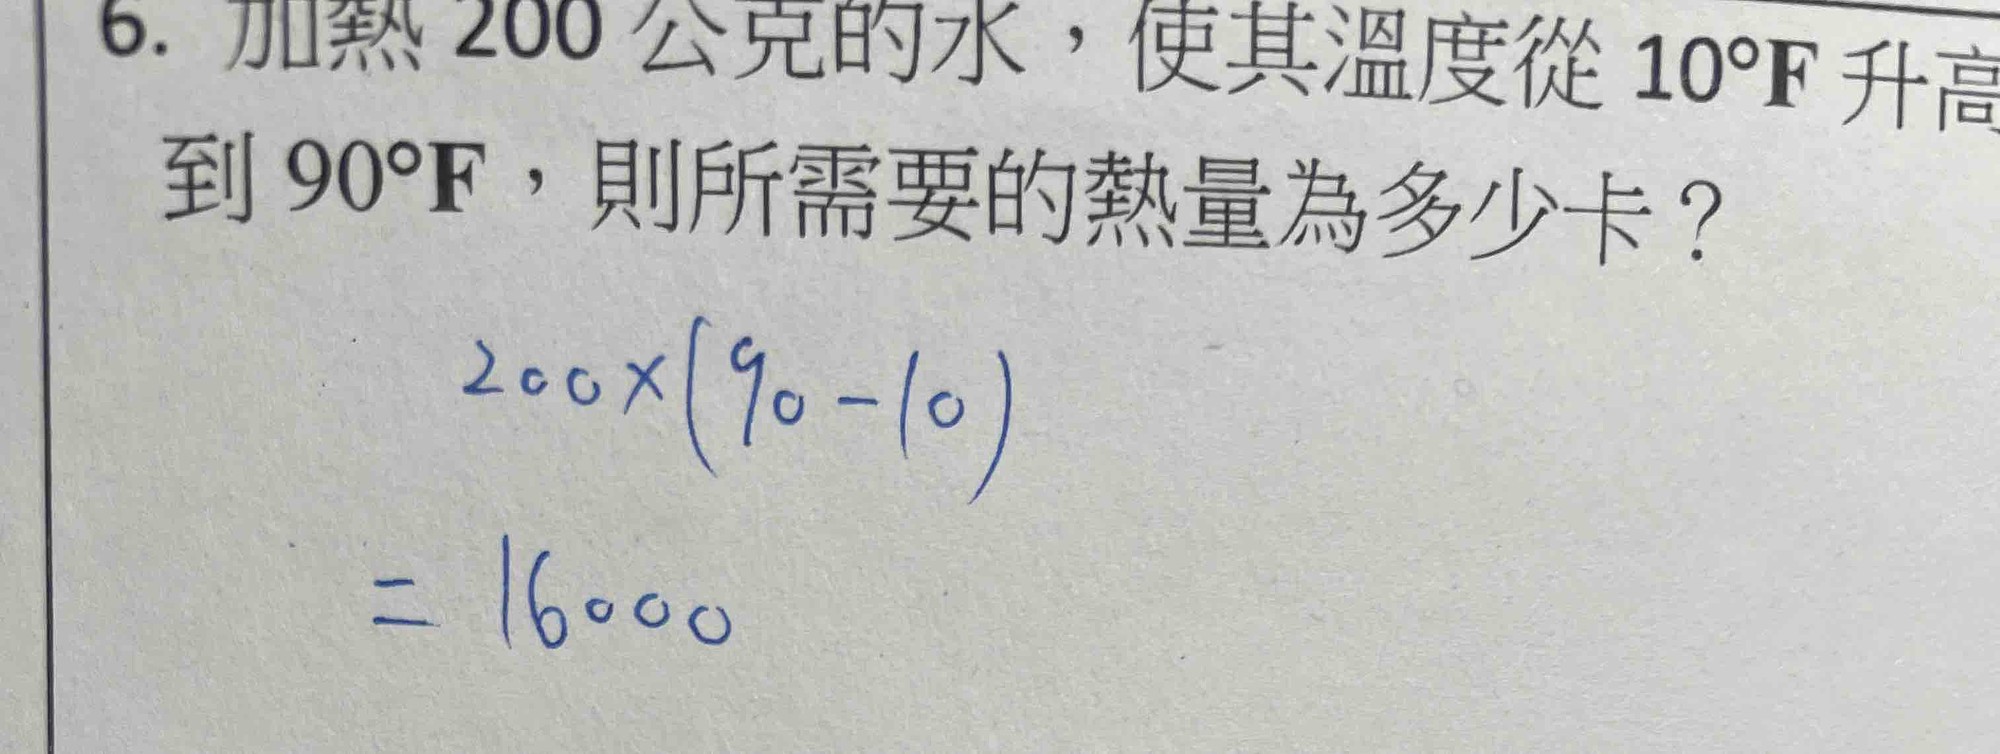 6. 加熱 200 公克的水，使其溫度從 10°F 升高
到 90°F，則所需要的熱量為多少卡？
200×(90-10)
= 16000